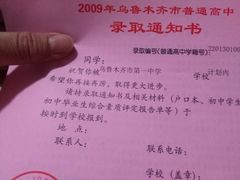 2009年乌鲁木齐市普通高中
录取通知书
录取编号(普通高中学籍号):220130100
同学:
祝贺你被乌鲁木齐市第一中学 学校计划内
希望你再接再厉、取得更大进步。
请持录取通知书及相关材料(户口本、初中学生
初中毕业生综合素质评定报告单等)于
按时到学校报到。
地 点:
联系人: 联系电话:
学校(盖章):